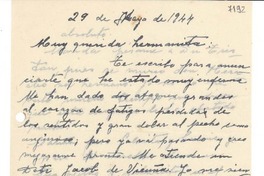 7192
29 de Mayo de 1944
Muy querida hermanita
Te escribo para anun
ciarte que he estado muy enferma
Me han dado dos ataques grandes
al corazon de fatigas pérdida de
los sentidos y gran dolor al pecho como
pero ya va pasando y creo
mejorarme pronto. Me atiende un
Dr. Jacob de Vicuña. Yo me siento